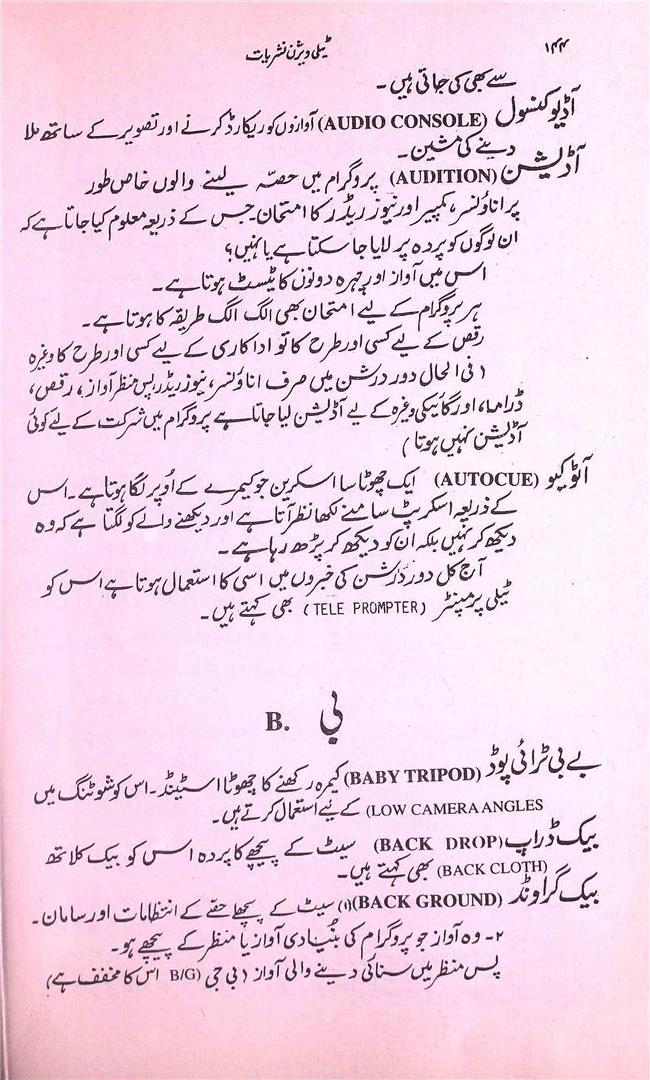 ۱۴۴
ٹیلی ویژن نشریات
سے بھی کی جاتی ہیں۔
آڈیو کنسول (AUDIO CONSOLE) آوازوں کو ریکارڈ کرنے اور تصویر کے ساتھ ملا
دینے کی مشین۔
آڈیشن (AUDITION) پروگرام میں حصّہ لینے والوں خاص طور
پر اناؤنسر، کمپیر اور نیوز ریڈر کا امتحان جس کے ذریعہ معلوم کیا جاتا ہے کہ
ان لوگوں کو پردہ پر لایا جا سکتا ہے یا نہیں؟
اس میں آواز اور چہرہ دونوں کا ٹیسٹ ہوتا ہے۔
ہر پروگرام کے لیے امتحان بھی الگ الگ طریقہ کا ہوتا ہے۔
رقص کے لیے کسی اور طرح کا تو اداکاری کے لیے کسی اور طرح کا وغیرہ
(فی الحال دور درشن میں صرف اناؤنسر، نیوز ریڈر، پس منظر آواز، رقص،
ڈراما، اور گائیکی وغیرہ کے لیے آڈیشن لیا جاتا ہے پروگرام میں شرکت کے لیے کوئی
آڈیشن نہیں ہوتا)
آٹو کیو (AUTOCUE) ایک چھوٹا سا اسکرین جو کیمرے کے اُوپر لگا ہوتا ہے۔ اس
کے ذریعہ اسکرپٹ سامنے لکھا نظر آتا ہے اور دیکھنے والے کو لگتا ہے کہ وہ
دیکھ کر نہیں بلکہ ان کو دیکھ کر پڑھ رہا ہے۔
آج کل دور درشن کی خبروں میں اسی کا استعمال ہوتا ہے اس کو
ٹیلی پرمپٹر (TELE PROMPTER) بھی کہتے ہیں۔
بی B.
بے بی ٹرائی پوڈ (BABY TRIPOD) کیمرہ رکھنے کا چھوٹا اسٹینڈ۔ اس کو شوٹنگ میں
LOW CAMERA ANGLES) کے لیے استعمال کرتے ہیں۔
بیک ڈراپ (BACK DROP) سیٹ کے پیچھے کا پردہ اس کو بیک کلاتھ
(BACK CLOTH) بھی کہتے ہیں۔
بیک گراؤنڈ (BACK GROUND) (۱) سیٹ کے پچھلے حصّے کے انتظامات اور سامان۔
۲۔ وہ آواز جو پروگرام کی بنیادی آواز یا منظر کے پیچھے ہو۔
پس منظر میں سنائی دینے والی آواز (بی جی B/G اس کا مخفف ہے)